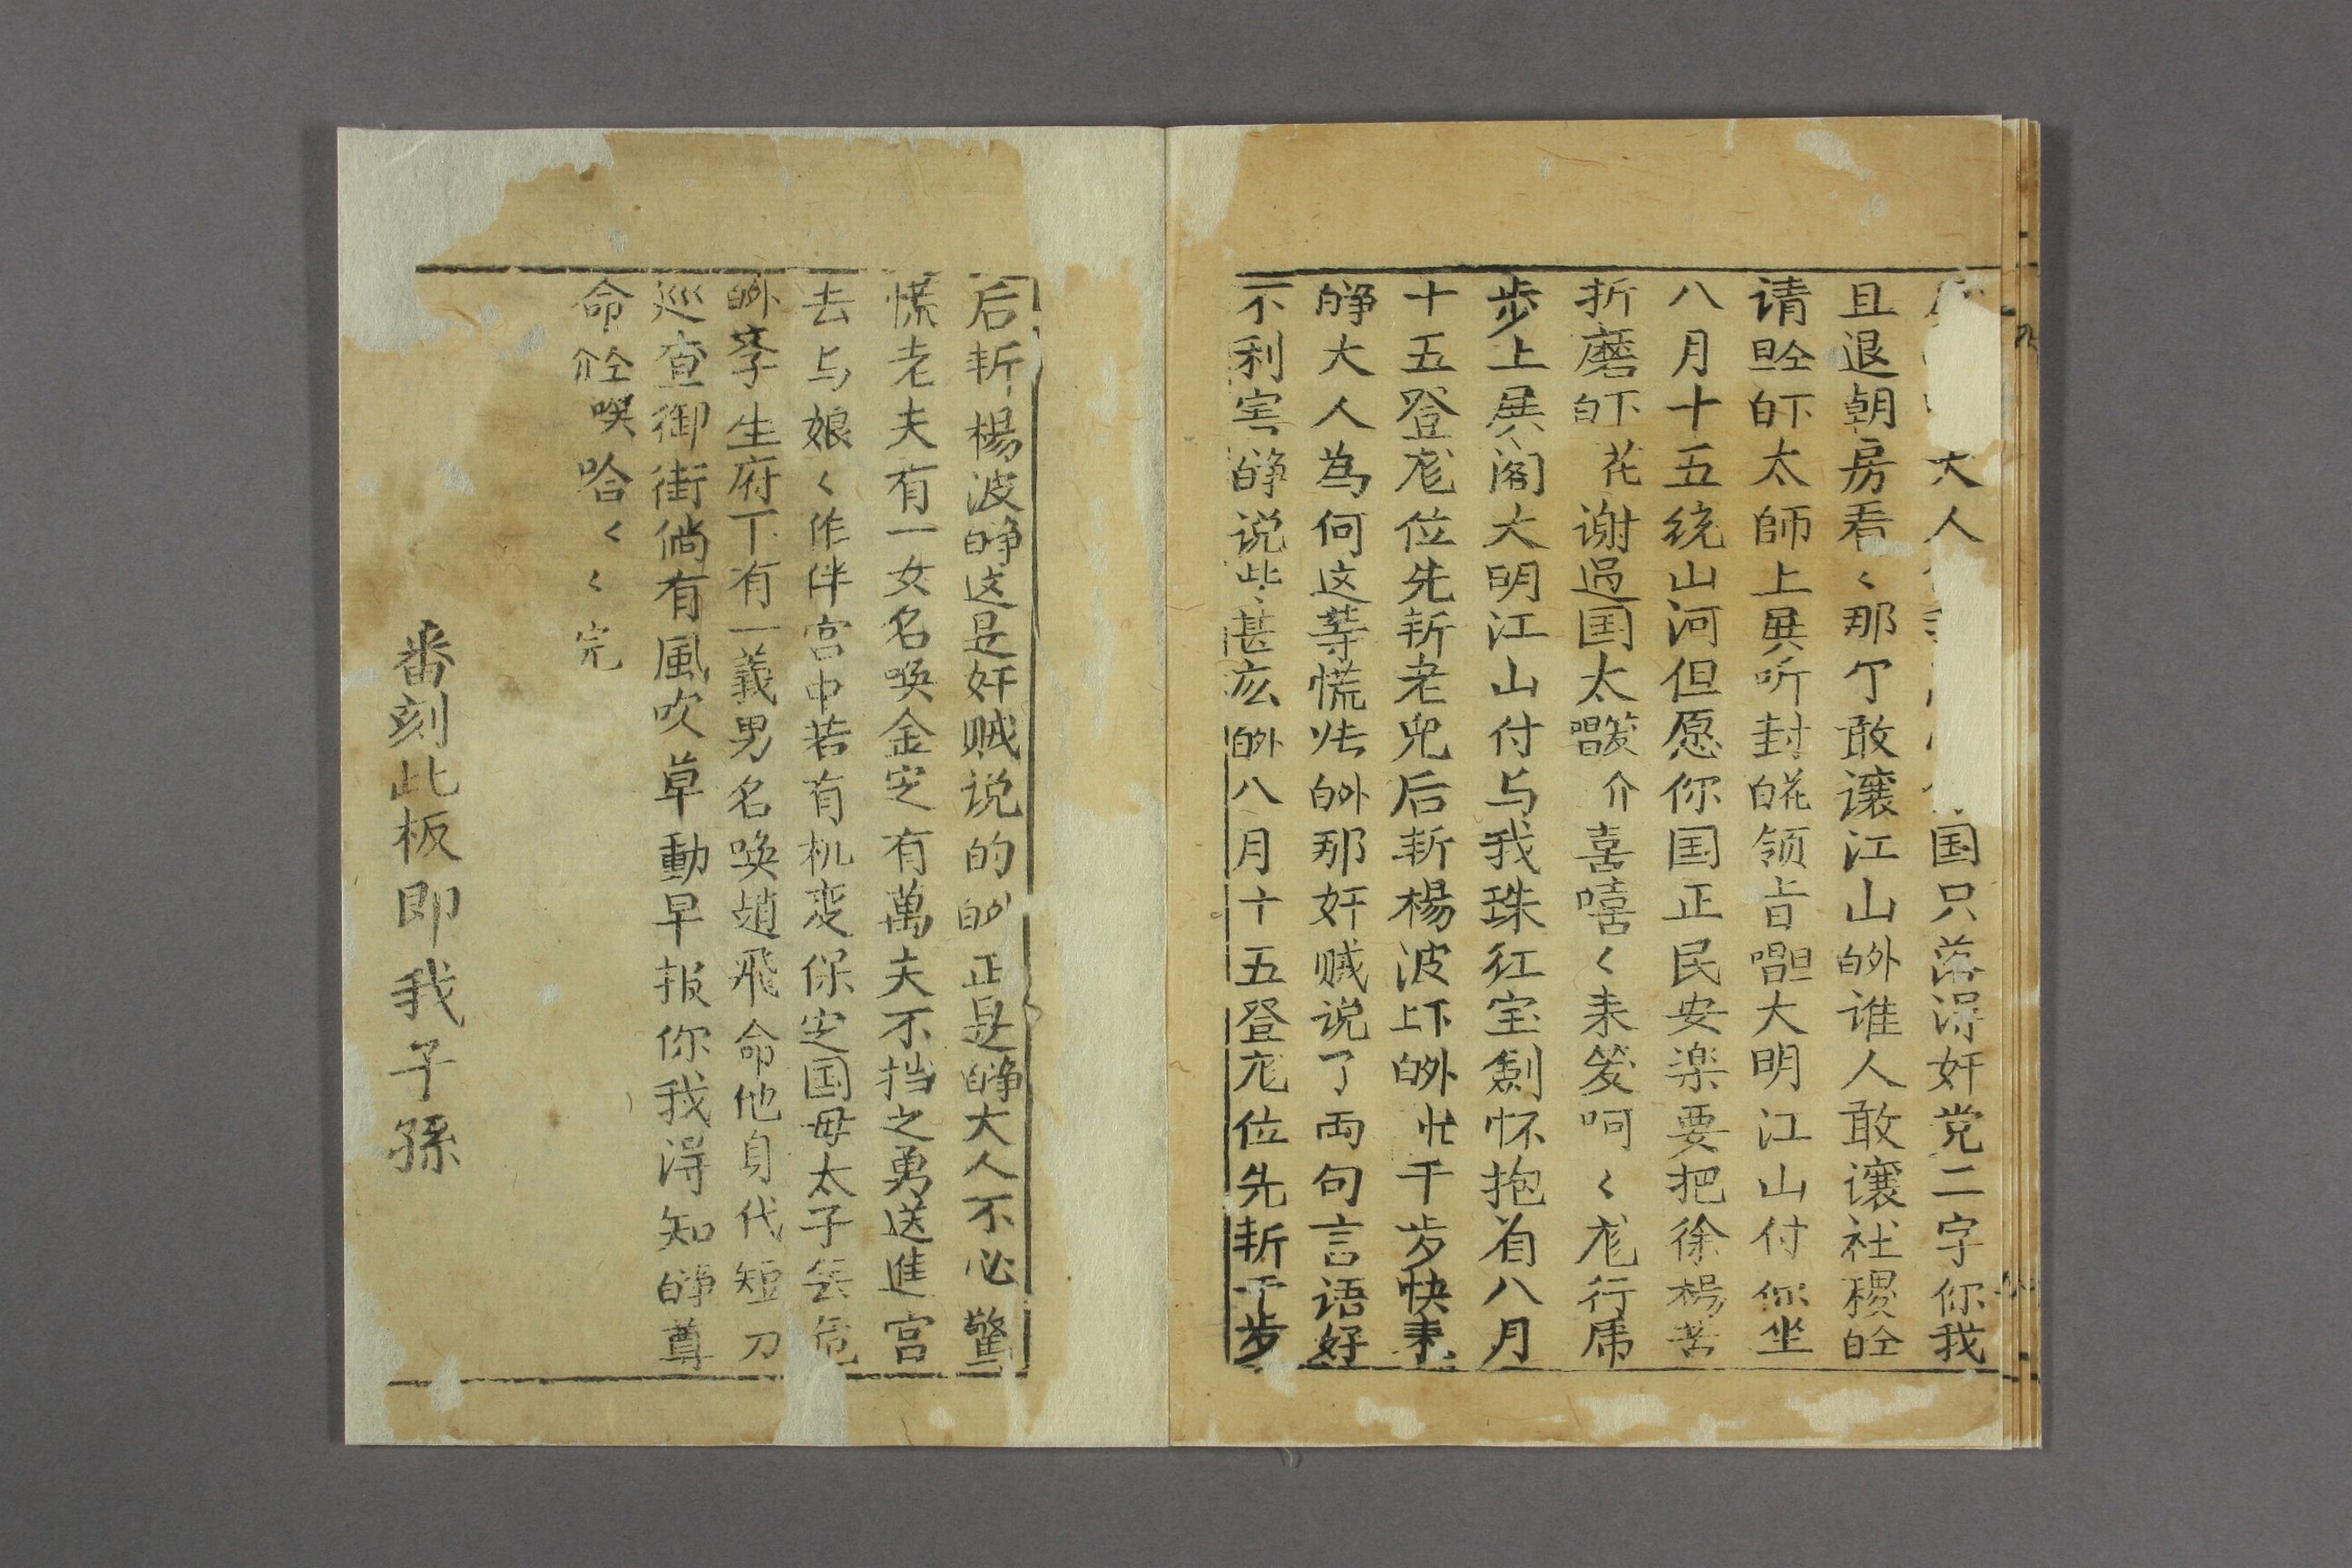 大人国只落得奸党二字你我
且退朝房看〻那个敢讓江山白外谁人敢讓社稷白仝
请旦仝白下太師上殿听封白花领旨唱旦大明江山付你坐
八月十五统山河但愿你国正民安楽要把徐楊苦
折磨白下花谢過国太唱笑介喜嘻〻来笑呵〻龙行虎
步上殿阁大明江山付与我珠红宝劍怀抱着八月
十五登龙位先斩老児后斩楊波上下白外壮千岁快来
白净大人為何这等慌忙白外那奸贼说了両句言语好
不利害白净说些甚広白外八月十五登龙位先斩千歩
后斩楊波白净这是奸贼说的白外正是白净大人不必驚
慌老夫有一女名唤金定有萬夫不挡之勇送進宫
去与娘〻作伴宫中若有机变保定国母太子無危
白外李生府下有一義男名唤趙飛命他身代短刀
巡查御街倘有風吹草動早报你我得知白净尊
命介仝唉哈〻〻完
番刻此板即我子孫